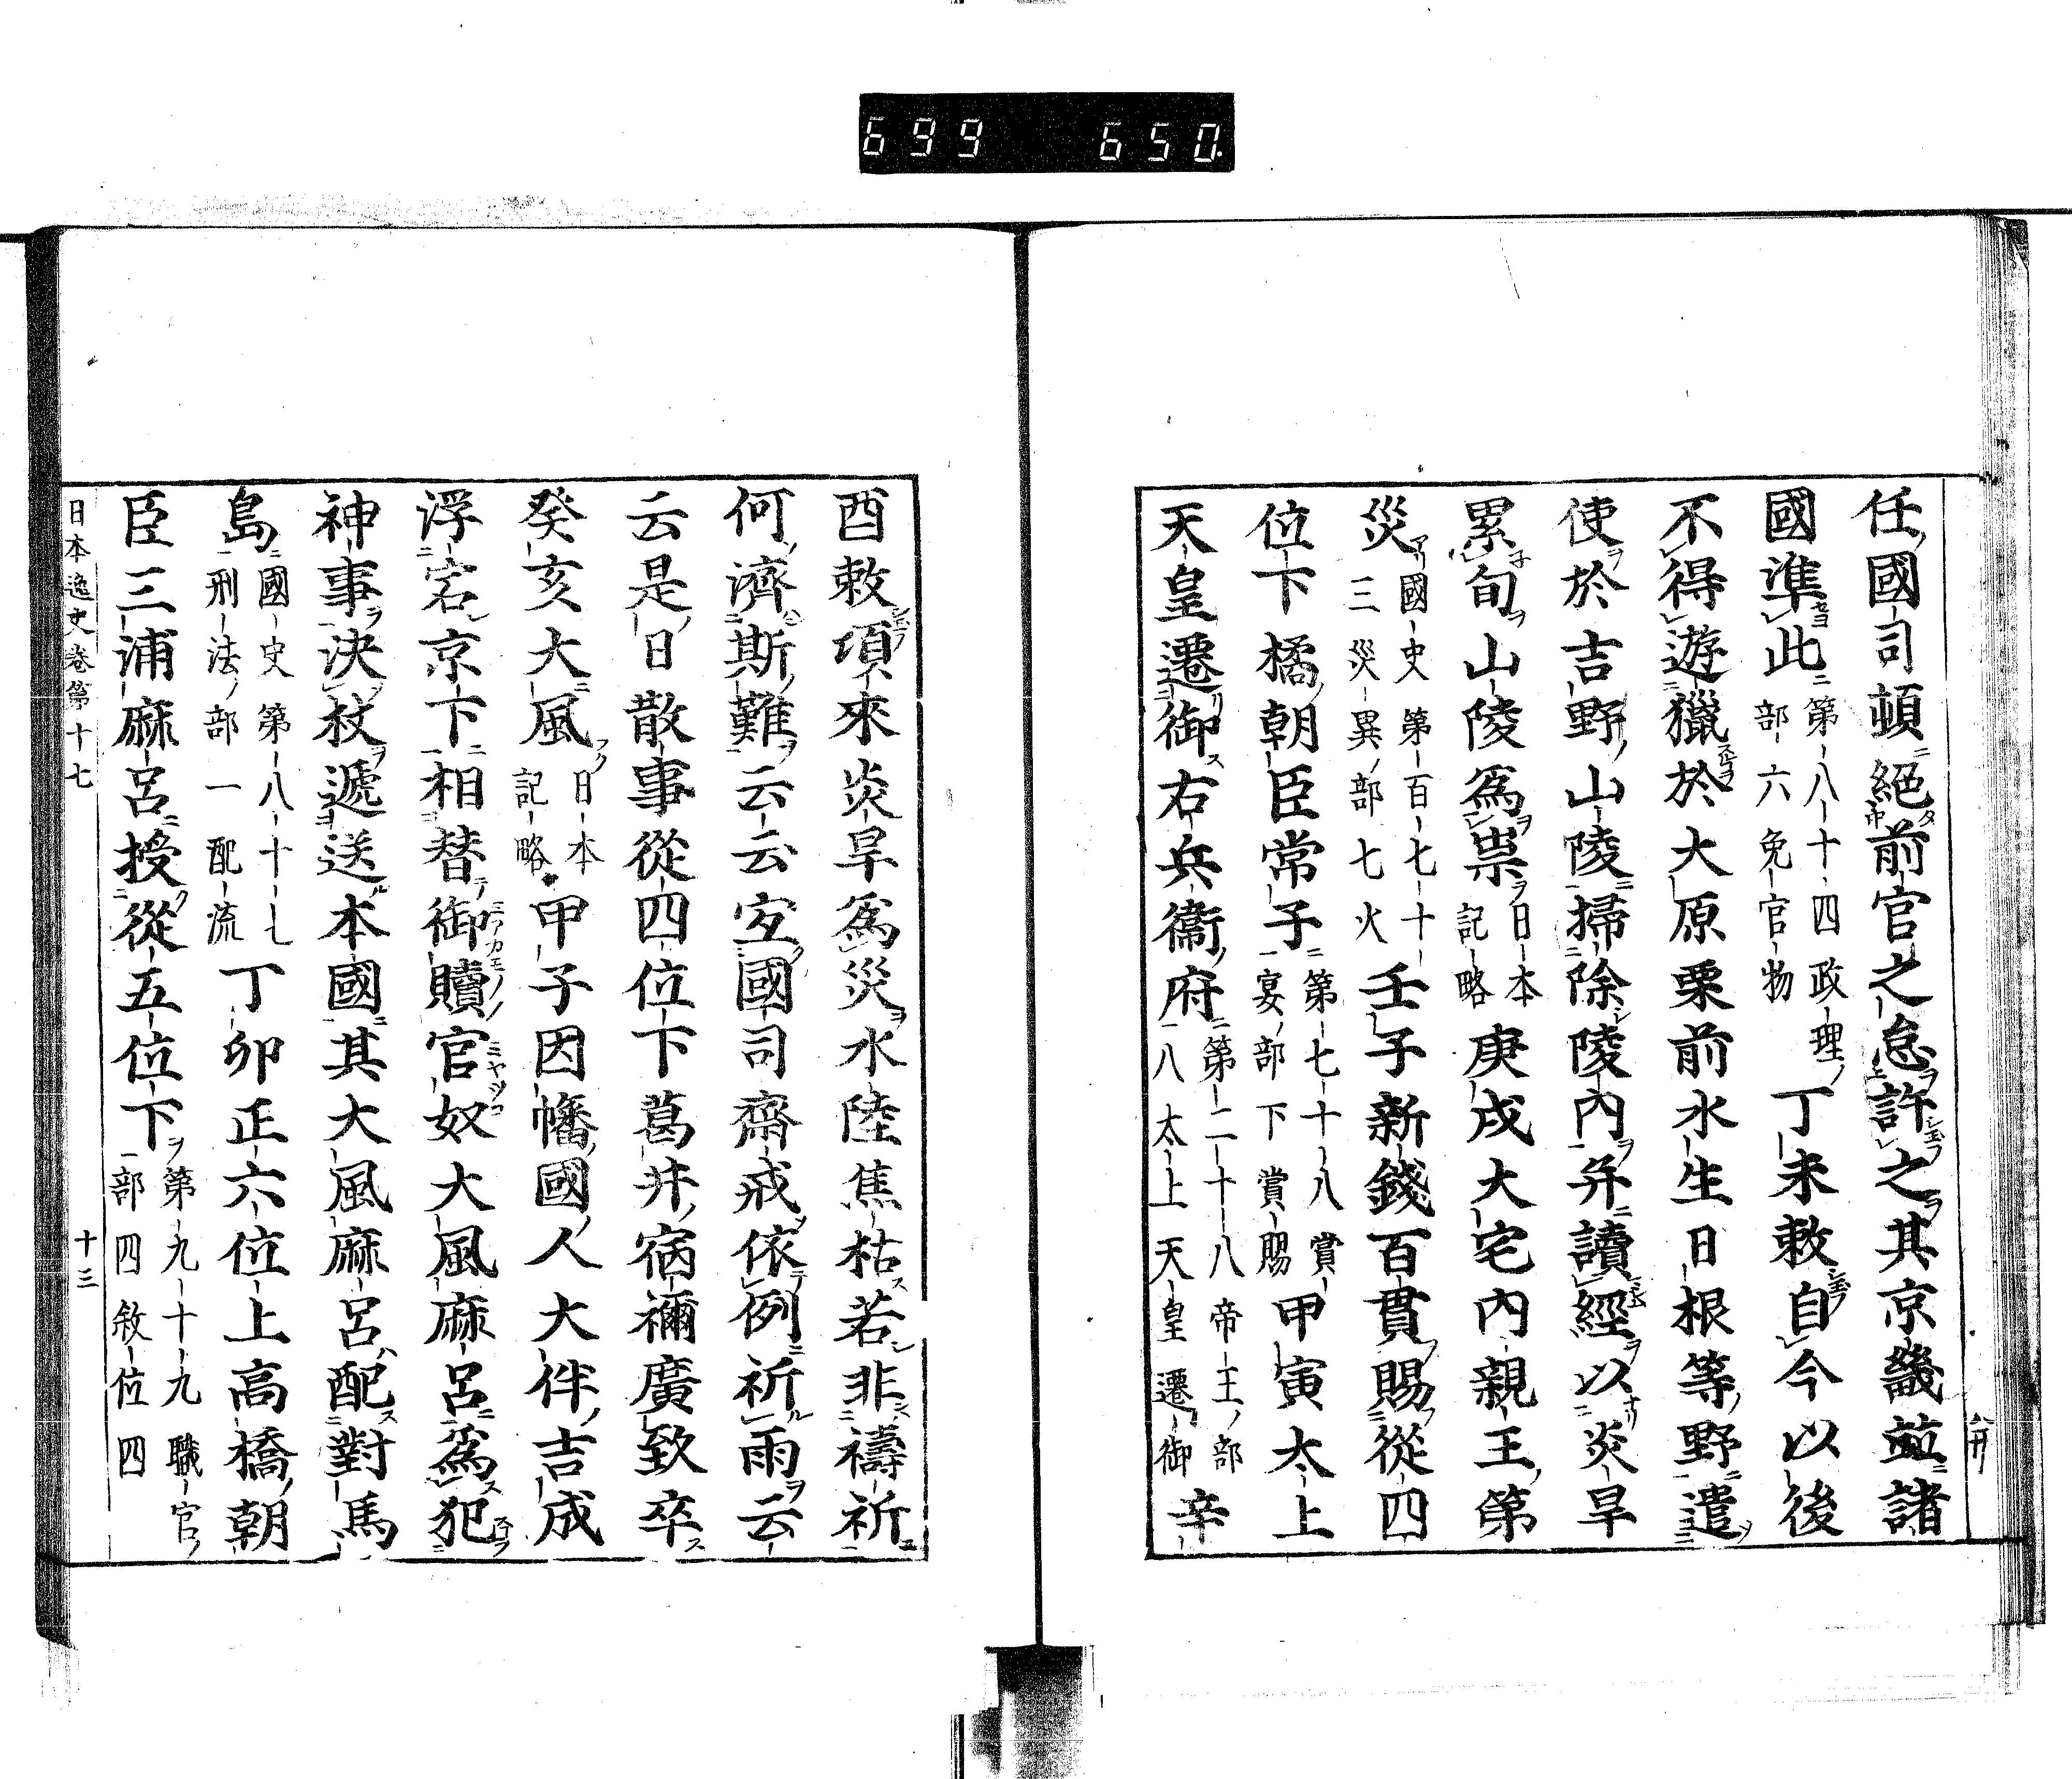 699 650
任國司頓絕前官之怠許之其京畿並諸
國準此第八十四政理部六免官物丁未敕自今以後
不得遊獵於大原栗前水生日根等野遣
使於吉野山陵掃除陵內并讀經以炎旱
累旬山陵爲祟日本記略庚戌大宅內親王第
災國史第百七十三災異部七火壬子新錢百貫賜從四
位下橘朝臣常子第七十八賞宴部下賞賜甲寅太上
天皇遷御右兵衞府第二十八帝王部八太上天皇遷御辛
酉敕項來炎旱爲災水陸焦枯若非禱祈
何濟斯難云云宜國司齋戒依例祈雨云
云是日散事從四位下葛井宿禰廣致卒
癸亥大風日本記略甲子因幡國人大伴吉成
浮宕京下相替御贖官奴大風麻呂爲犯
神事決杖遞送本國其大風麻呂配對馬
島國史第八十七刑法部一配流丁卯正六位上高橋朝
臣三浦麻呂授從五位下第九十九職官部四敘位四
日本逸史卷第十七 十三